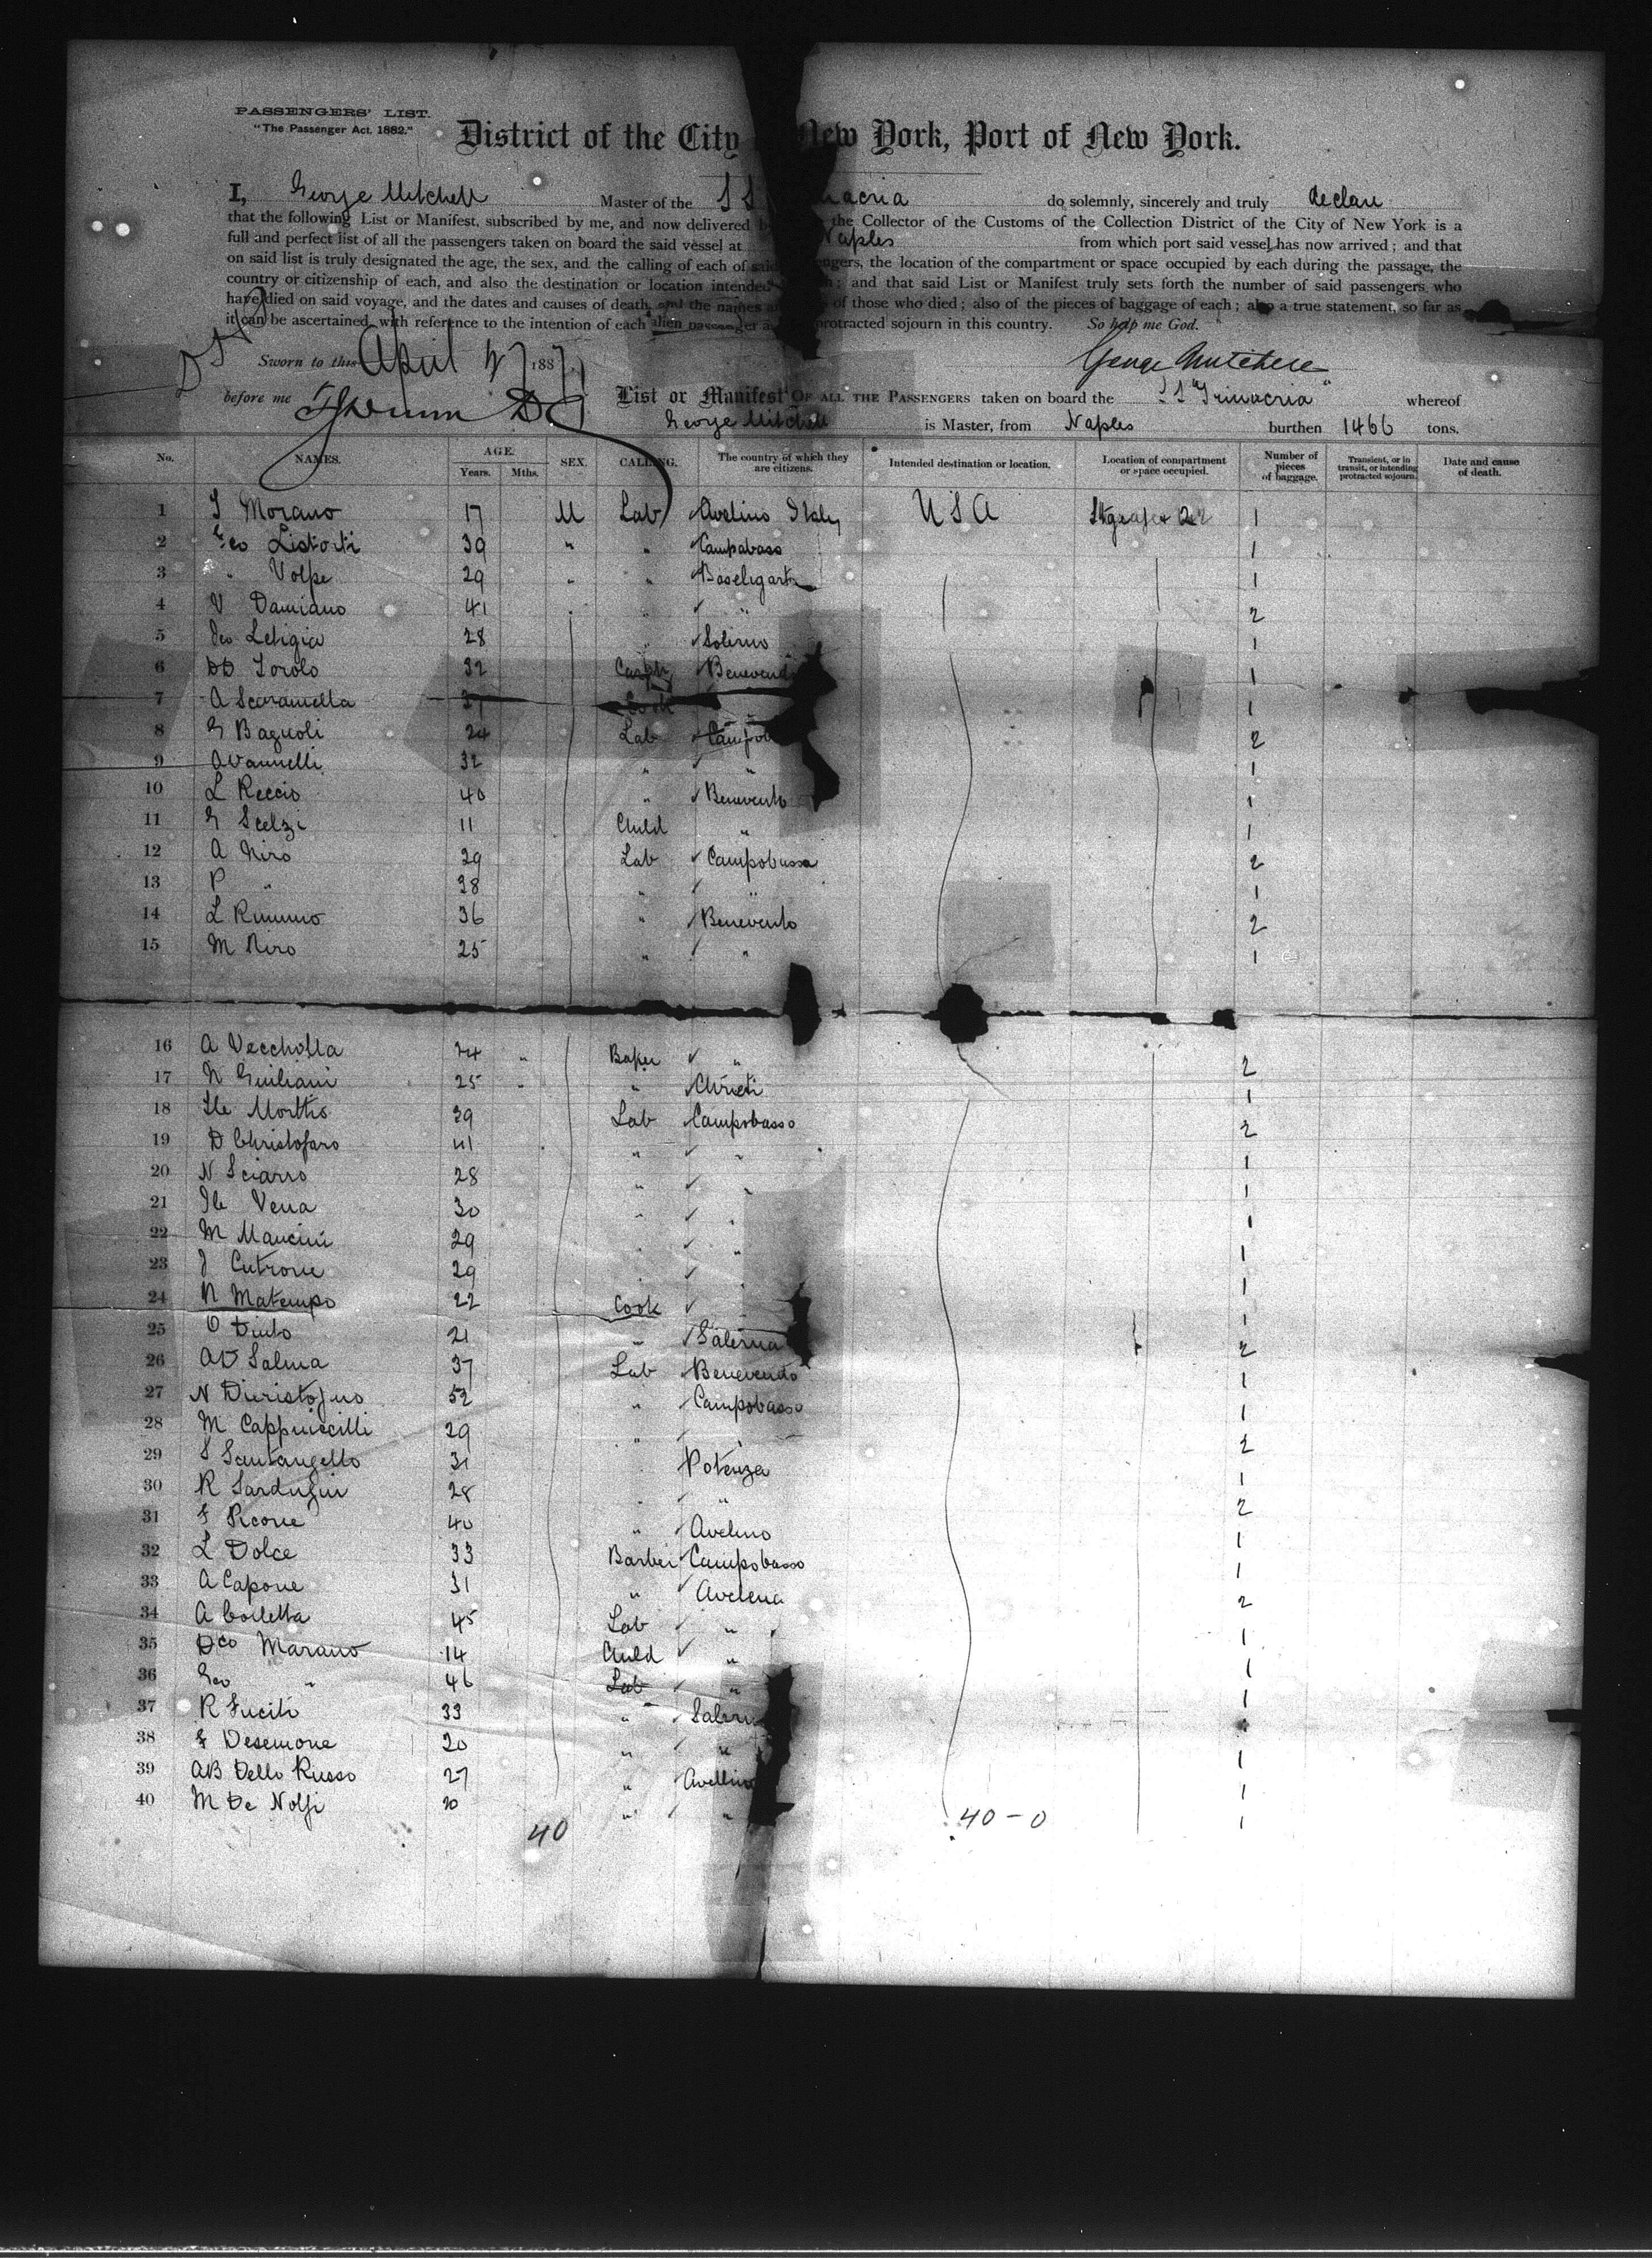 PASSENGERS' LIST.
"The Passenger Act, 1882."
District of the City New York, Port of New York.
I, George Mitchell Master of the SS nacria do solemnly, sincerely and truly declare
that the following List or Manifest, subscribed by me, and now delivered the Collector of the Customs of the Collection District of the City of New York is a
full and perfect list of all the passengers taken on board the said vessel at Naples from which port said vessel has now arrived; and that
on said list is truly designated the age, the sex, and the calling of each of said engers, the location of the compartment or space occupied by each during the passage, the
country or citizenship of each, and also the destination or location intended ; and that said List or Manifest truly sets forth the number of said passengers who
have died on said voyage, and the dates and causes of death, and the names of those who died; also of the pieces of baggage of each; also a true statement, so far as
it can be ascertained, with reference to the intention of each alien passenger protracted sojourn in this country. So help me God.
Sworn to this April 27 1887 George Mitchell
before me List or Manifest OF ALL THE PASSENGERS taken on board the SS "Trinacria" whereof
George Mitchell is Master, from Naples burthen 1466 tons.
No. NAMES. AGE. Years. Mths. SEX. CALLING. The country of which they are citizens. Intended destination or location. Location of compartment or space occupied. Number of pieces of baggage. Transient, or in transit, or intending protracted sojourn. Date and cause of death.
1 Morano 17 M Lab Avelino Italy USA 1
2 Geo Listorti 39 " " Campabaso 1
3 " Volpe 29 " " 1
4 V Damiano 41 " " " 2
5 Letigia 28 " Solerno 1
6 DD Torolo 32 1
7 A Scaramella Cook 1
8 G Bagnoli 24 Lab 2
9 A Vannelli 32 " " 1
10 L Reccio 40 " Benevento 1
11 G Scelzi 11 Child " 1
12 A Niro 29 Lab Campobassa 2
13 P " 28 " " 1
14 L 36 " Benevento 2
15 M Niro 25 " " 1
16 A Vecchotta " " 2
17 N Guiliani 25 " " Chrieti 1
18 Mortto 29 Lab Campobasso 2
19 D Christofaro 41 " " 1
20 N Sciarro 28 " " 1
21 Vena 30 " " 1
22 M Mancini 29 " " 1
23 J Cutrone 29 " 1
24 N Matempo 22 Cook 1
25 21 " Salerna 2
26 AD Salma 37 Lab Benevendo 1
27 N 52 " Campobasso 1
28 M Cappuccilli 29 " 2
29 S Santangello 31 Potenza 1
30 R 28 " " 2
31 F Picone 40 " Avelino 1
32 L Dolce 33 Barber Campobasso 1
33 A Capone 31 " Avelena 2
34 A Coiletta 45 Lab " 1
35 Dco Marano 14 Child " 1
36 Geo " 46 Lab " 1
37 R Fucito 33 "
38 F Desemone 20 " " 1
39 AB Dello Russo 27 " Avellino 1
40 M De Nolfi 20 " " 1
40
40-0